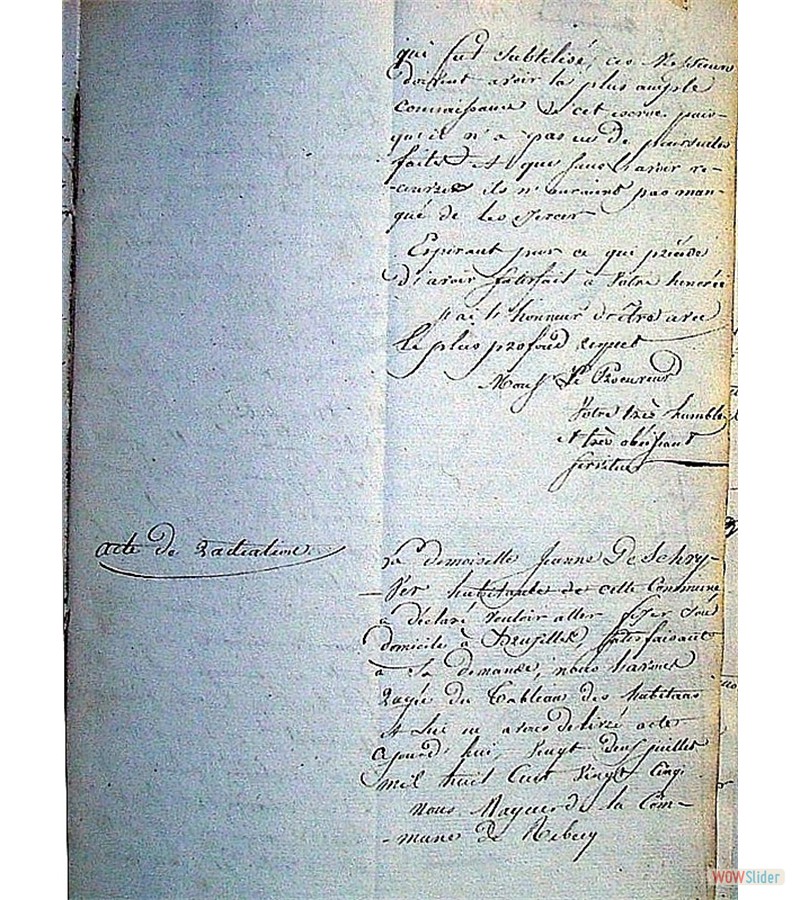 qui fut subtilisé, ces Messieurs
doivent avoir la plus ample
connaissance de cet escroc puis-
qu'il n'a pas eu de poursuites
faites et que sans l'avoir re-
ils n'auraient pas man-
qué de les exercer
Espérant par ce qui précède
d'avoir satisfait à votre honorée
j'ai l'honneur d'être avec
le plus profond respect
Mons.r Le Procureur
Votre très humble
et très obéissant
serviteur
acte de radiation
La demoiselle Jeanne De Schry-
ver habitante de cette Commune
a déclaré vouloir aller fixer son
domicile à Bruxelles, satisfaisant
à sa demande, nous l'avons
rayée du Tableau des habitans
et lui en avons délivré acte
ajourd'hui, vingt deux juillet
mil huit cent vingt cinq.
nous de la Com-
-mune de Rebecq
WOWSlider